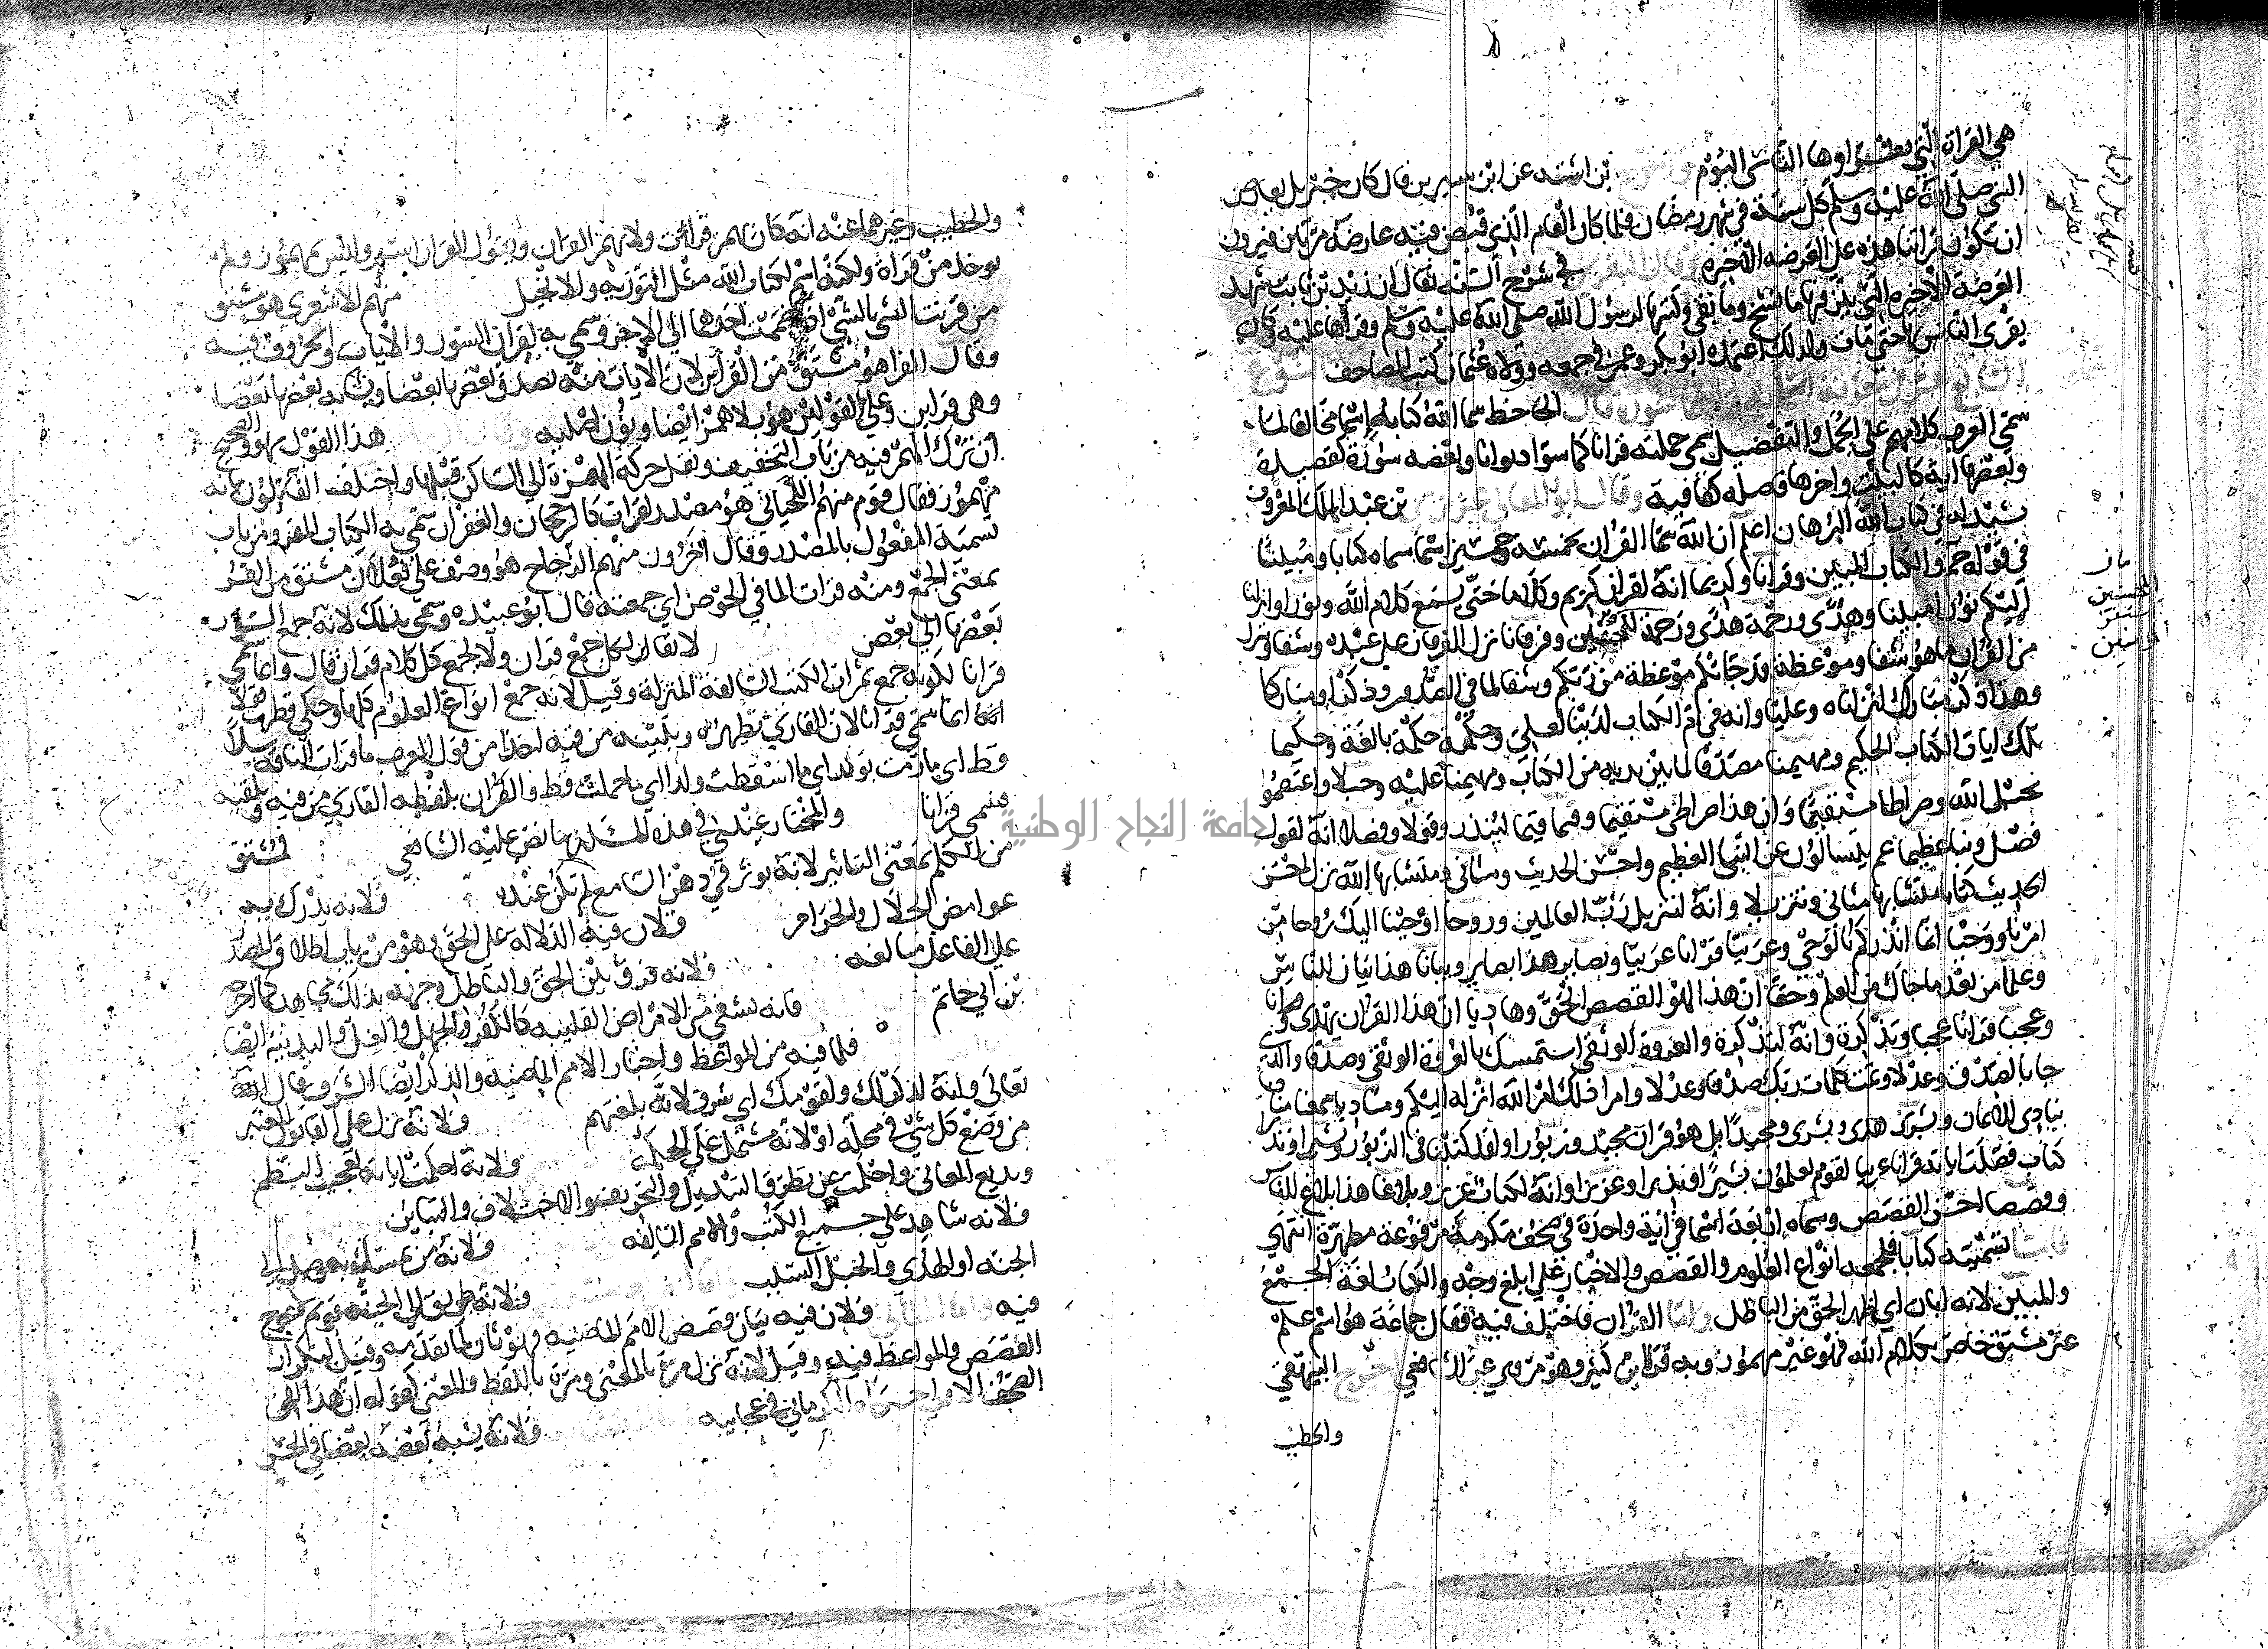 هي القراة التي يقراوها الناس اليوم بن اشته عن ابن سيرين قال كان جبريل يعارض
النبي صلى الله عليه وسلم كل سنة في شهر رمضان فلما كان العام الذي قبض فيه عارضه مرتين فيرون
ان تكون قراتنا هذه على العرضه الاخيره في شرح السنه يقال ان زيد بن ثابت شهد
العرضة الاخيره التي بين فيها ما نسخ وما بقي وكتبها لرسول الله صلى الله عليه وسلم وقراها عليه وكان
يقرئ الناس بها حتى مات ولذلك اعتمده ابو بكر وعمر في جمعه وولاه عثمان كتب المصاحف
قال الجاحظ سما الله كتابه اسما مخالفا لما
سمى العرب كلامهم على الجمل والتفصيل سمى جملته قرانا كما سموا ديوانا وبعضه سورة كقصيدة
وبعضها اية كالبيت واخرها فاصلة كقافية وقال ابو المعالي عزيزي بن عبد الملك المعروف
شيذله في كتاب البرهان اعلم ان الله سما القران بخمسة وخمسين اسما سماه كتابا ومبينا
في قوله حم والكتاب المبين وقرانا وكريما انه لقران كريم وكلاما حتى يسمع كلام الله ونورا وانزلنا
اليكم نورا مبينا وهدى ورحمة هدى ورحمة للمحسنين وفرقانا نزل الفرقان على عبده وشفا وننزل
من القران ما هو شفا وموعظة قد جاتكم موعظة من ربكم وشفا لما في الصدور وذكرا ومباركا
وهذا ذكر مبارك انزلناه وعليا وانه في ام الكتاب لدينا لعلي وحكمة حكمة بالغة وحكيما
تلك ايات الكتاب الحكيم ومهيمنا مصدقا لما بين يديه من الكتاب ومهيمنا عليه وحبلا واعتصموا
بحبل الله وصراطا مستقيما وان هذا صراطي مستقيما وقيما قيما لينذر وقولا وفصلا انه لقول
فصل ونبا عظيما عم يتسالون عن النبا العظيم واحسن الحديث ومثاني ومتشابها الله نزل احسن
الحديث كتابا متشابها مثاني وتنزيلا وانه لتنزيل رب العالمين وروحا اوحينا اليك روحا من
امرنا ووحيا انما انذركم بالوحي وعربيا قرانا عربيا وبصاير هذا بصاير وبيانا هذا بيان للناس
وعلما من بعد ما جاك من العلم وحقا ان هذا لهو القصص الحق وهاديا ان هذا القران يهدي
وعجبا قرانا عجبا وتذكرة وانه لتذكرة والعروة الوثقى استمسك بالعروة الوثقى وصدقا والذي
جا بالصدق وعدلا وتمت كلمات ربك صدقا وعدلا وامرا ذلك امر الله انزله اليكم ومناديا سمعنا مناديا
ينادي للايمان وبشرى هدى وبشرى ومجيدا بل هو قران مجيد وزبورا ولقد كتبنا في الزبور وبشيرا ونذيرا
كتاب فصلت اياته قرانا عربيا لقوم يعلمون بشيرا ونذيرا وعزيزا وانه لكتاب عزيز وبلاغا هذا بلاغ للناس
وقصصا احسن القصص وسماه اربعة اسما في اية واحدة في صحف مكرمة مرفوعة مطهرة انتهى
فاما تسميته كتابا فلجمعه انواع العلوم والقصص والاخبار على ابلغ وجه والكتاب لغة الجمع
والمبين لانه ابان اي اظهر الحق من الباطل واما القران فاختلف فيه فقال جماعة هو اسم علم
غير مشتق خاص بكلام الله فهو غير مهموز وبه قرا ابن كثير وهو مروي عن الشافعي اخرج البيهقي
والخطيب
والخطيب وغيرهما عنه انه كان يهمز قرات ولا يهمز القران ويقول القران اسم وليس بمهموز ولم
يوخذ من قراة ولكنه اسم لكتاب الله مثل التوريه والانجيل منهم الاشعري هو مشتق
من قرنت الشي بالشي اذا ضممت احدهما الى الاخر وسمي به لقران السور والايات والحروف فيه
وقال الفرا هو مشتق من القراين لان الايات منه يصدق بعضها بعضا ويشابه بعضها بعضا
وهي قراين وعلى القولين هو بلا همز ايضا ونون اصليه هذا القول سهو والصحيح
ان ترك الهمز فيه من باب التخفيف ونقل حركة الهمزة الى الساكن قبلها واختلف القايلون بانه
مهموز فقال قوم منهم اللحياني هو مصدر لقرات كالرجحان والغفران سمي به الكتاب المقرو من باب
تسمية المفعول بالمصدر وقال اخرون منهم الزجاج هو وصف على فعلان مشتق من القرء
بمعنى الجمع ومنه قرات الما في الحوض اي جمعته قال ابو عبيده وسمي بذلك لانه جمع السور
بعضها الى بعض لا يقال لكل جمع قران ولا لجمع كل كلام قران قال وانما سمي
قرانا لكونه جمع ثمرات الكتب السالفة المنزلة وقيل لانه جمع انواع العلوم كلها وحكى قطرب قولا
انه انما سمي قرانا لان القاري يظهره ويبينه من فيه اخذا من قول العرب ما قرات الناقة سلا
قط اي ما رمت بولد اي ما اسقطت ولدا اي ما حملت قط والقران يلفظه القاري من فيه ويلقيه
فسمي قرانا والمختار عندي في هذه المسئلة ما نص عليه الشافعي فمشتق
من الكلم بمعنى التاثير لانه يوثر في ذهن السامع لم تكن عنده فلانه يدرك به
غوامض الحلال والحرام فلان فيه الدلالة على الحق وهو من باب اطلاق المصدر
على الفاعل مبالغه فلانه فرق بين الحق والباطل وجهه بذلك مجاهد كما اخرجه
بن ابي حاتم فانه يشفي من الامراض القلبيه كالكفر والجهل والغل والبدنية ايضا
فلما فيه من المواعظ واخبار الامم الماضيه والذكر ايضا الشرف قال الله
تعالى وانه لذكر لك ولقومك اي شرف لانه بلغتهم فلانه نزل على القانون المعتبر
من وضع كل شي في محله او لانه مشتمل على الحكمة ولانه احكمت اياته بعجيب النظم
وبديع المعاني واحكمت عن تطرق التبديل والتحريف والاختلاف والتباين
فلانه شاهد على جميع الكتب والامم السالفه فلانه من تمسك به وصل الى
الجنه او الهدى والحبل السبب فلانه طريق الى الجنه قويم لا عوج
فيه واما المثاني فلان فيه بيان قصص الامم الماضيه فهو ثان لما تقدمه وقيل لتكرار
القصص والمواعظ فيه وقيل لانه نزل مرة بالمعنى ومرة باللفظ والمعنى كقوله ان هذا لفي
الصحف الاولى حكاه الكرماني في عجايبه فلانه يشبه بعضه بعضا في الحسن
جامعة النجاح الوطنية